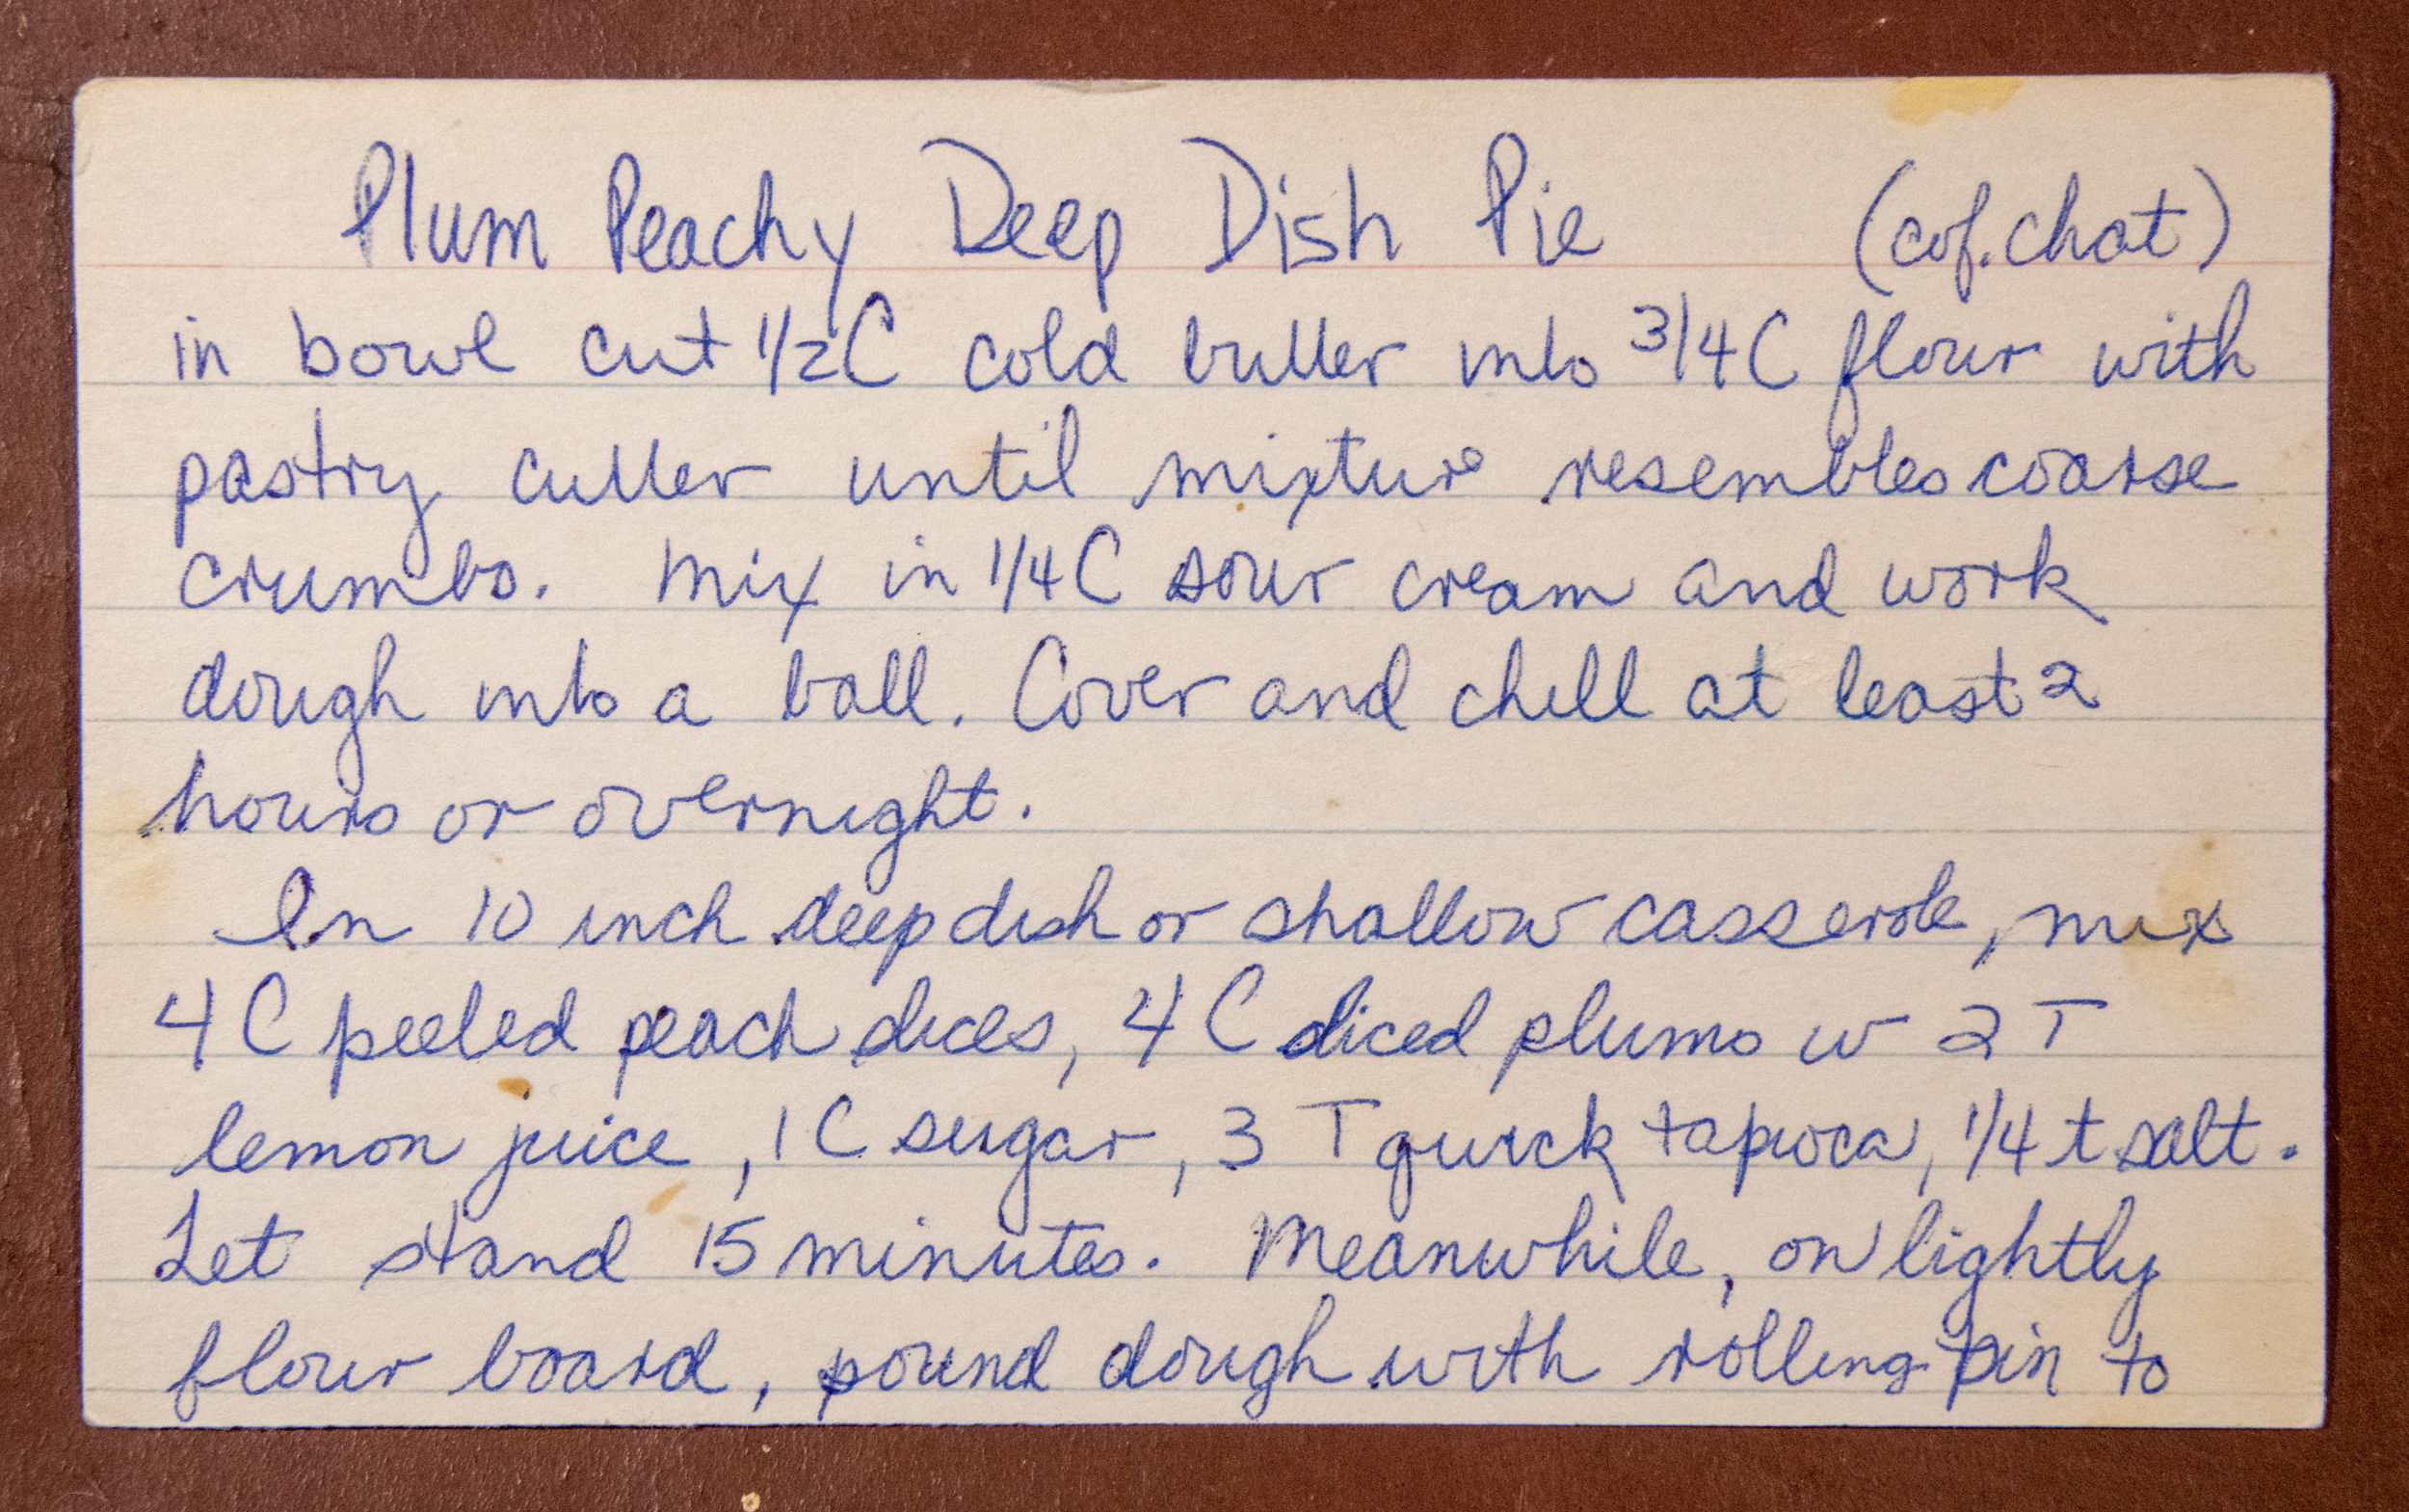 Plum Peachy Deep Dish Pie (cof. chat)
in bowl cut 1/2 C cold butter into 3/4 C flour with
pastry cutter until mixture resembles coarse
crumbs. Mix in 1/4 C sour cream and work
dough into a ball. Cover and chill at least 2
hours or overnight.
In 10 inch deep dish or shallow casserole, mix
4 C peeled peach dices, 4 C diced plums w 2 T
lemon juice, 1 C sugar, 3 T quick tapioca, 1/4 t salt.
Let stand 15 minutes. Meanwhile, on lightly
flour board, pound dough with rolling pin to